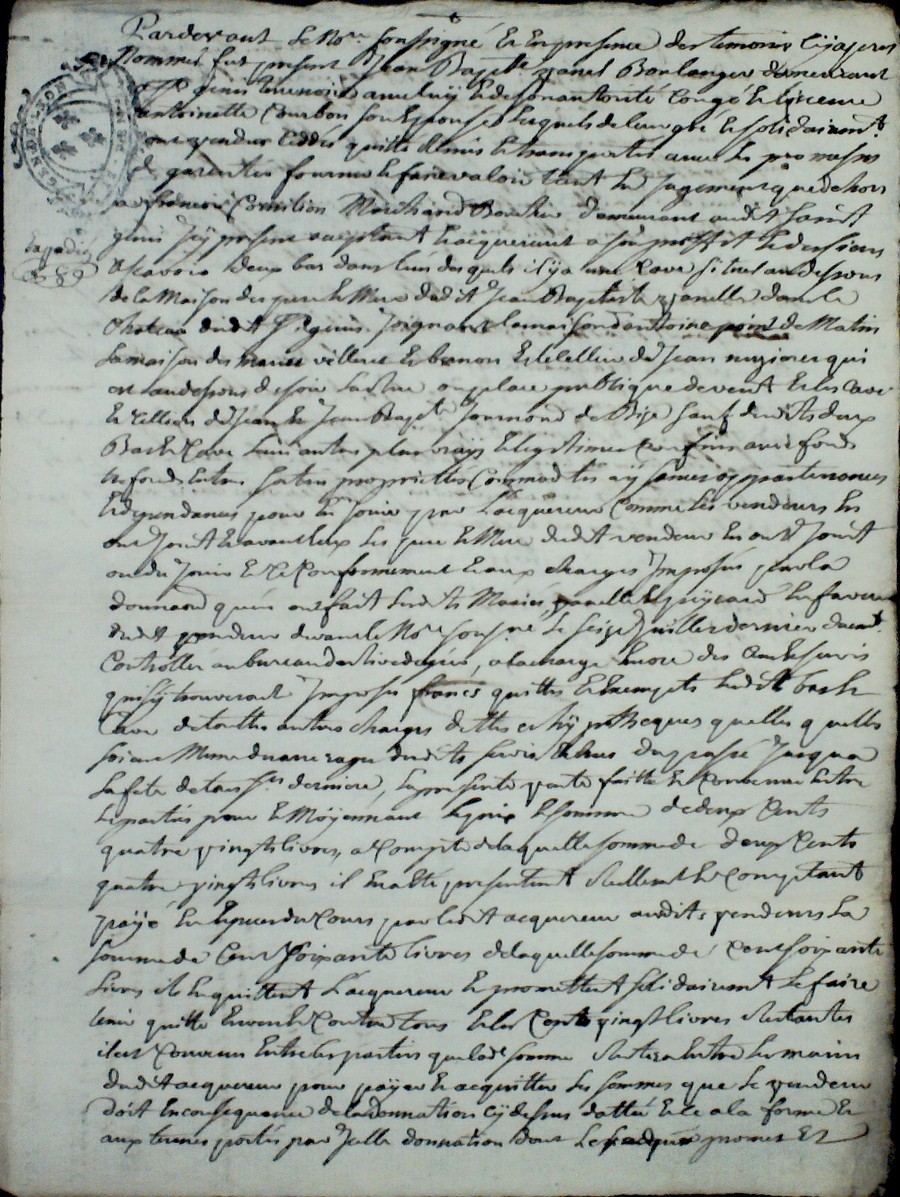 Pardevant Le No.re soussigné Et En presence des temoins Cy apres
Nommés fut present Jean Bapt.te Boulanger demeurant
a S.t genis de luy Et de son autorité Congé Et Licence
antoinette Courbon son Epouse Lesquels de leur gré Et solidairem.t
ont vendus Ceddés quitté Remis Et transportés avec Les promesses
de garenties fournir Et faire valoir tant En Jugement que dehors
a françois Marchand demeurant audit Saint
genis Icy present acceptant Et acquerant a son proffit Et des siens
a scavoir deux bas dans l'un desquels il y a une Cave situés au dessous
de la Maison des pere Et Mere dudit Jean Baptiste dans le
Chateau dudit S.t genis Joignant la maison d'antoine point de Matin
La maison des mariés villeret Et Et le Cellier de Jean qui
est au dessous de soir La rue ou place publique devant Et les Cave
Et Cellier de Jean Et Jean Bapt.te de Bize Sauf desdits deux
Bas Et Cave Leurs autres plus vrays Et legitimes Confins avec fonds
tres fonds Entrées Sorties proprietés Commodités aysances appartenances
Et dependances pour En Jouir par L'acquereur Comme Les vendeurs En
ont Jouit Et avant Eux Les pere Et Mere dudit vendeur En ont Jouit
ou du Jouir Et Ce Conformement Et aux charges Imposés par la
donnation qu'en ont fait Lesdits Mariés Et En faveur
dudit vendeur devant le No.re soussigné Le seize Juillet dernier duem.t
Controllée au bureau de, a la charge Encore des Cens Et servis
qui s'y trouveront Imposés francs quittes Et Exempts Lesdits bas Et
Cave de touttes autres charges dettes Et hypotheques quelles quelles
soient Meme d'arrerages desdits servis Echus du passé Jusqua
La fete de tous S.ts derniere, La presente vente faitte Et Convenue Entre
Les parties pour Et Moyennant Le prix Et somme de deux Cents
quatre vingt livres, a Compte de laquelle somme de deux Cents
quatre vingt livres il En a Eté presentement Reellement Et Comptant
payé En Especes du Cours par ledit acquereur auxdits vendeurs La
somme de Cent soixante livres de laquelle somme de Cent soixante
livres ils En quittent L'acquereur Et promettent solidairement Le faire
tenir quitte Envers Et Contre tous Et les Cents vingt livres Restantes
il est Convenu Entre les parties que lad.e somme Restera Entre les mains
dudit acquereur pour payer Et acquitter Les sommes que Le vendeur
doit En consequence de la donnation Cy dessus dattée Et Ce a la forme Et
aux termes portés par Jcelle donnation dont promet Et